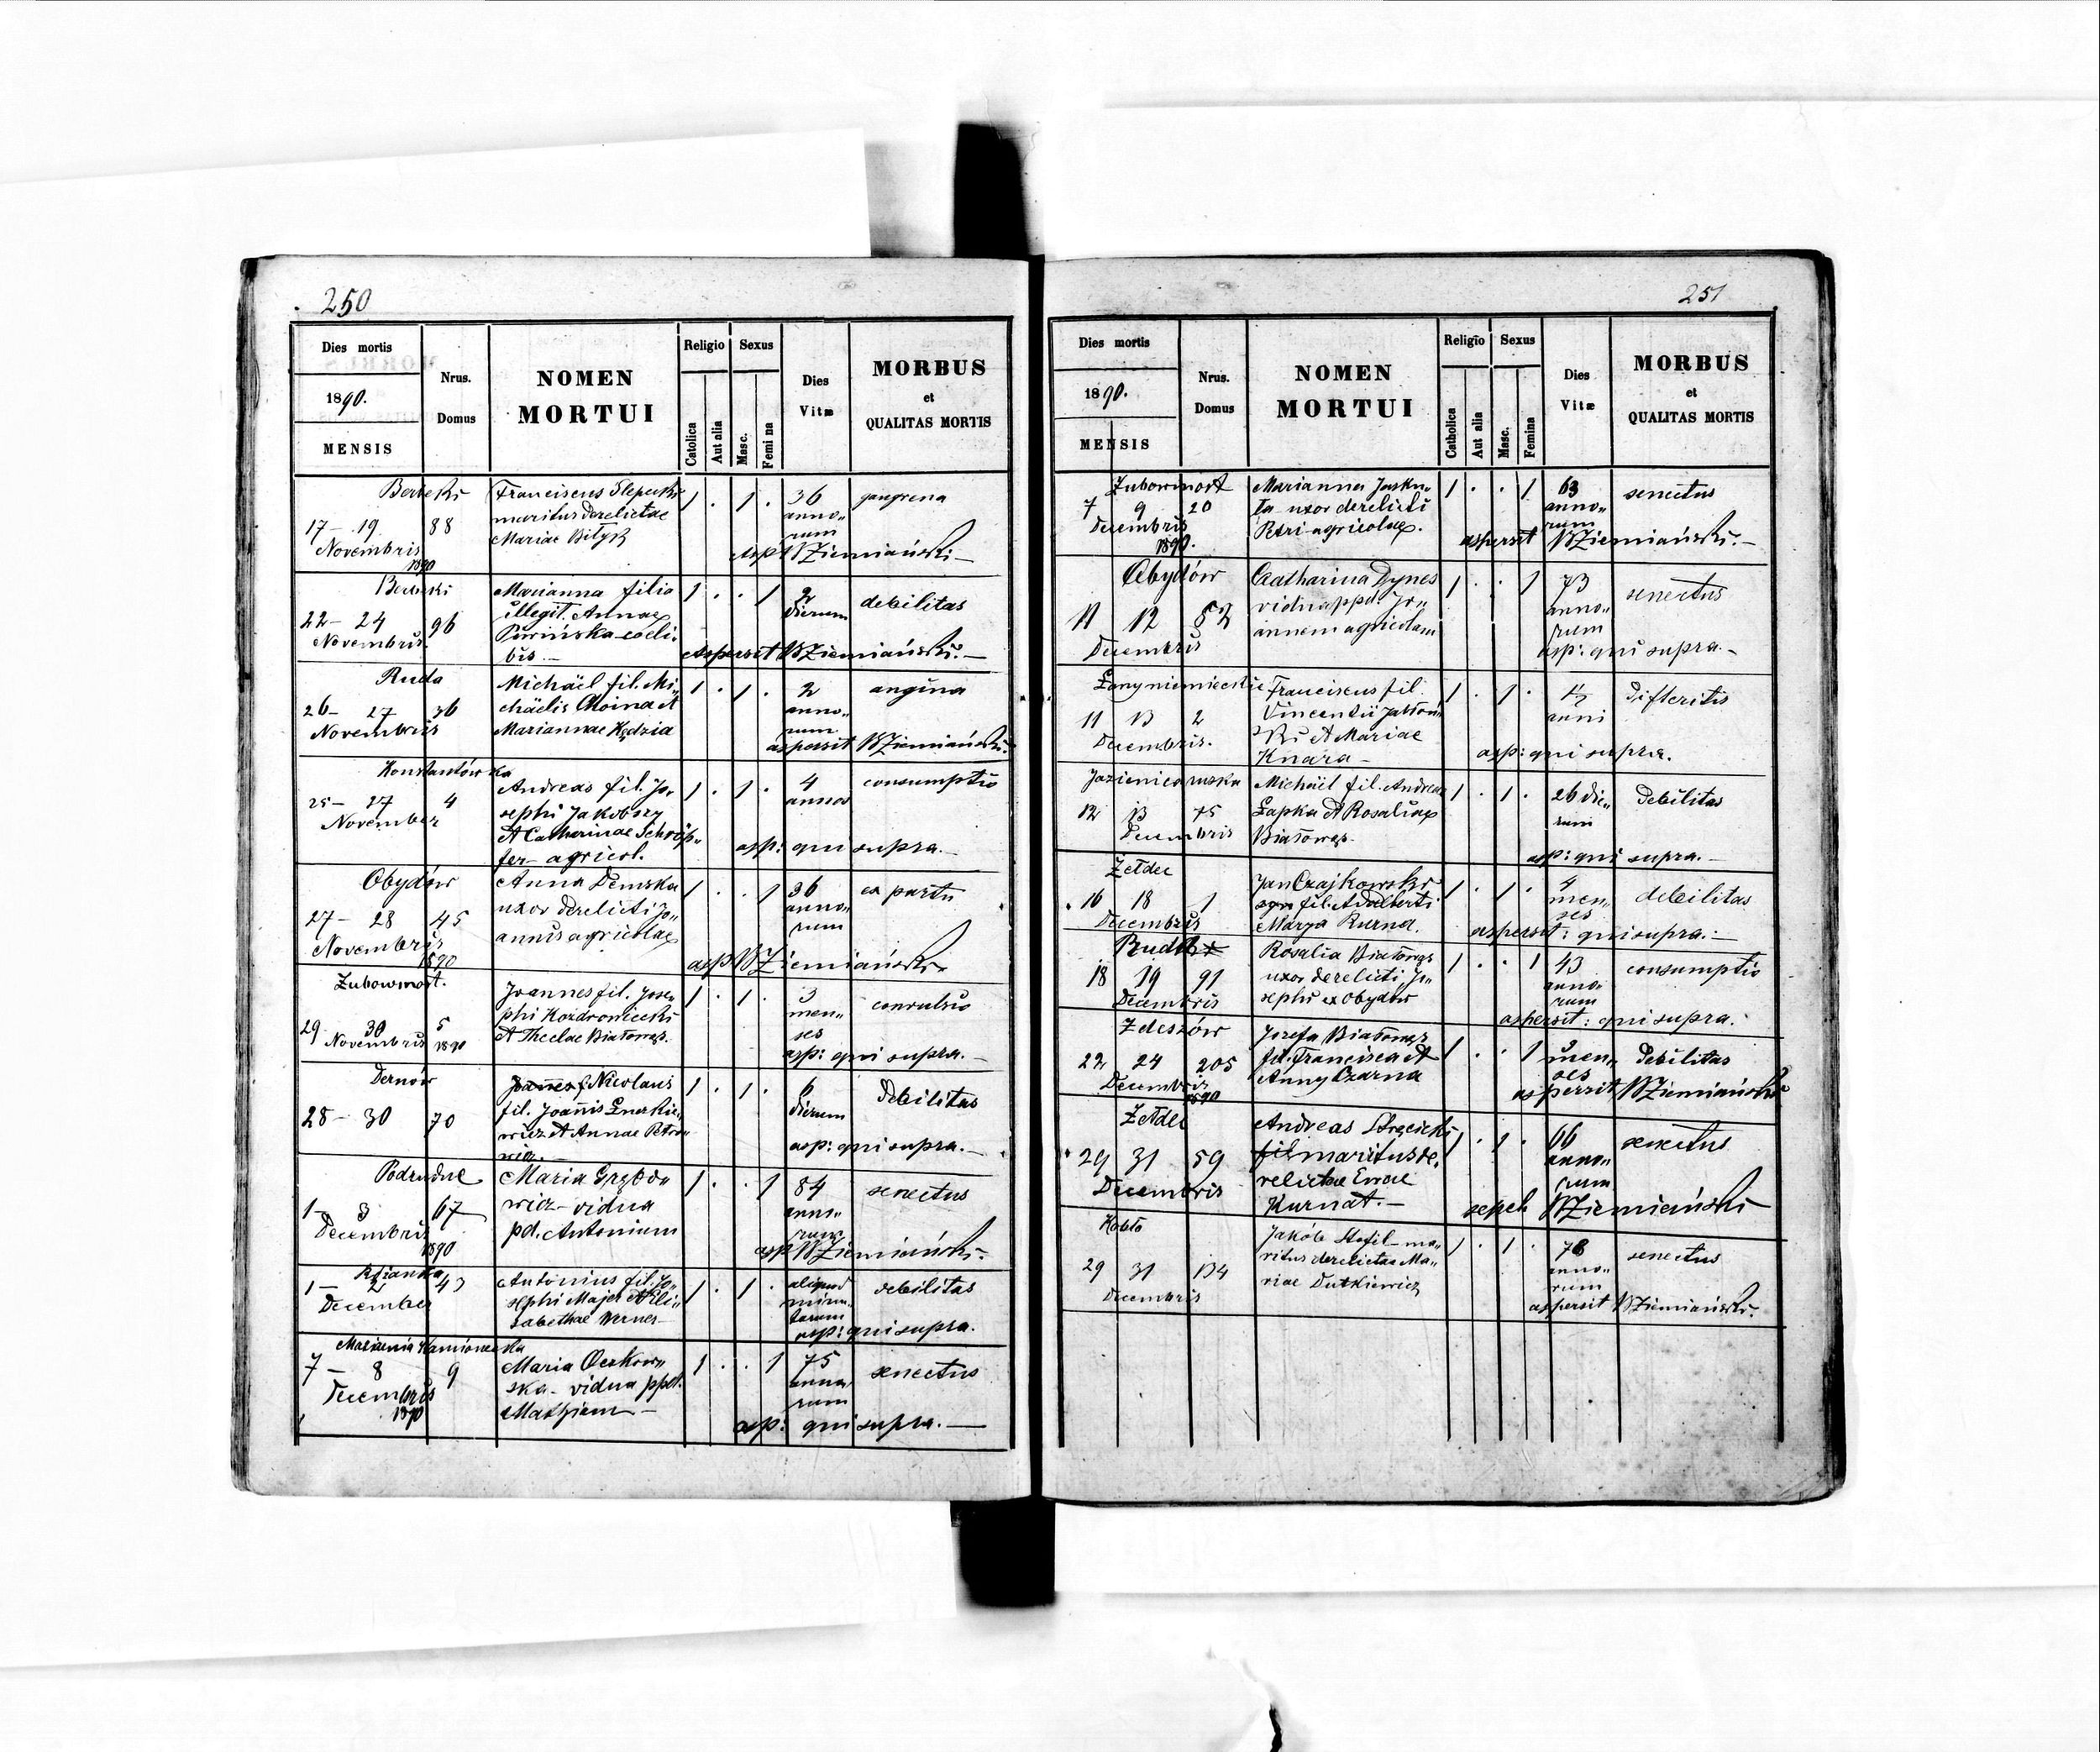 250
Dies mortis
1890.
MENSIS
Nrus.
Domus
NOMEN
MORTUI
Religio
Sexus
Catolica
Aut alia
Masc.
Femina
Dies
Vitæ
MORBUS
et
QUALITAS MORTIS
Berbeki
17 - 19 88
Novembris
1890
Franciscus Slepecki
maritus derelictae
Mariae Bityk
1 . 1 .
36
anno„
rum
gangrena
asp WZiemiański. -
Berbeki
22 - 24 96
Novembris.
Marianna filia
illegit. Annae
coeli„
bis -
1 . . 1
2
dierum
debilitas
Aspersit WZiemiański. -
Ruda
26 - 27 36
Novembris
Michäel fil. Mi„
chaelis Choina et
Mariannae Kędzia
1 . 1 .
2
anno„
rum
angina
aspersit WZiemiański.
Konstantówka
25 - 27 4
November
Andreas fil. Jo„
sephi Jakobszy
et Catharinae Schröp„
fer - agricol.
1 . 1 .
4
annos
consumptio
asp: qui supra. -
Obydów
27 - 28 45
Novembris
1890
Anna Demska
uxor derelicti Jo„
annis agricolae
1 . . 1
36
anno„
rum
ex partu
asp WZiemiański.
Żubowmost.
29 30 5
Novembris 1890
Joannes fil. Jose„
phi Kozdroniecki
et Theclae Białowąs.
1 . 1 .
3
men„
ses
convulsio
asp: qui supra. -
Dernów
28 - 30 70
Joannes f. Nicolaus
fil. Joannis
wicz et Annae
1 . 1 .
6
dierum
debilitas
asp: qui supra. -
Podrudne
1 - 3 67
Decembris
1890
Maria
wicz - vidua
pd. Antonium
1 . . 1
84
anno„
rum
senectus
asp WZiemiański.
1 - 2 43
December
Antonius fil. Jo„
sephi Majer et Eli„
sabethae Werner -
1 . 1 .
aliquod
minu„
tarum
debilitas
asp: qui supra.
7 - 8 9
Decembris
1890
Maria Ockow„
ska - vidua ppd.
Mathiam -
1 . . 1
75
anno„
rum
senectus
asp: qui supra. -
251
Dies mortis
1890.
MENSIS
Nrus.
Domus
NOMEN
MORTUI
Religio
Sexus
Catholica
Aut alia
Masc.
Femina
Dies
Vitæ
MORBUS
et
QUALITAS MORTIS
Żubowmost
7 9 20
Decembris
1890.
Marianna Jasku„
ła uxor derelicti
Petri agricolae.
1 . . 1
63
anno„
rum
senectus
aspersit WZiemiański. -
Obydów
11 12 82
Decembris
Catharina Dynes
vidua ppd. Jo„
annem agricolam
1 . . 1
73
anno„
rum
senectus
asp: qui supra. -
Łany niemieckie
11 13 2
Decembris.
Franciscus fil.
Vincentii Jabłoń„
ski et Mariae
Knara -
1 . 1 .
1/2
anni
difteritis
asp: qui supra.
Jazienica ruska
12 13 75
Decembris
Michäel fil. Andreae
Łapka et Rosaliae
Białowąs.
1 . 1 .
26 die„
rum
debilitas
asp: qui supra. -
Żełdec
16 18 1
Decembris
Jan Czajkowski
syn fil. Adalberti
Marya Kurna.
1 . 1 .
4
men„
ses
debilitas
aspersit: qui supra. -
Ruda
18 19 91
Decembris
Rosalia Białowąs
uxor derelicti Jo„
sephi ex Obydów
1 . . 1
43
anno„
rum
consumptio
aspersit: qui supra.
Zdeszów
22 24 205
Decembris
1890
Jozefa Białowąs
fil. Francisca et
Anny Czarna
1 . . 1
men„
ses
debilitas
aspersit WZiemiański
Żełdec
29 31 59
Decembris
Andreas Stręcicki
fil maritus de„
relictae Evae
Kurnat. -
1 . 1 .
66
anno„
rum
senectus
sepel WZiemiański
29 31 134
Decembris
Jakób Stefil - ma„
ritus derelictae Ma„
riae Dutkiewicz
1 . 1 .
78
anno„
rum
senectus
aspersit WZiemiański.